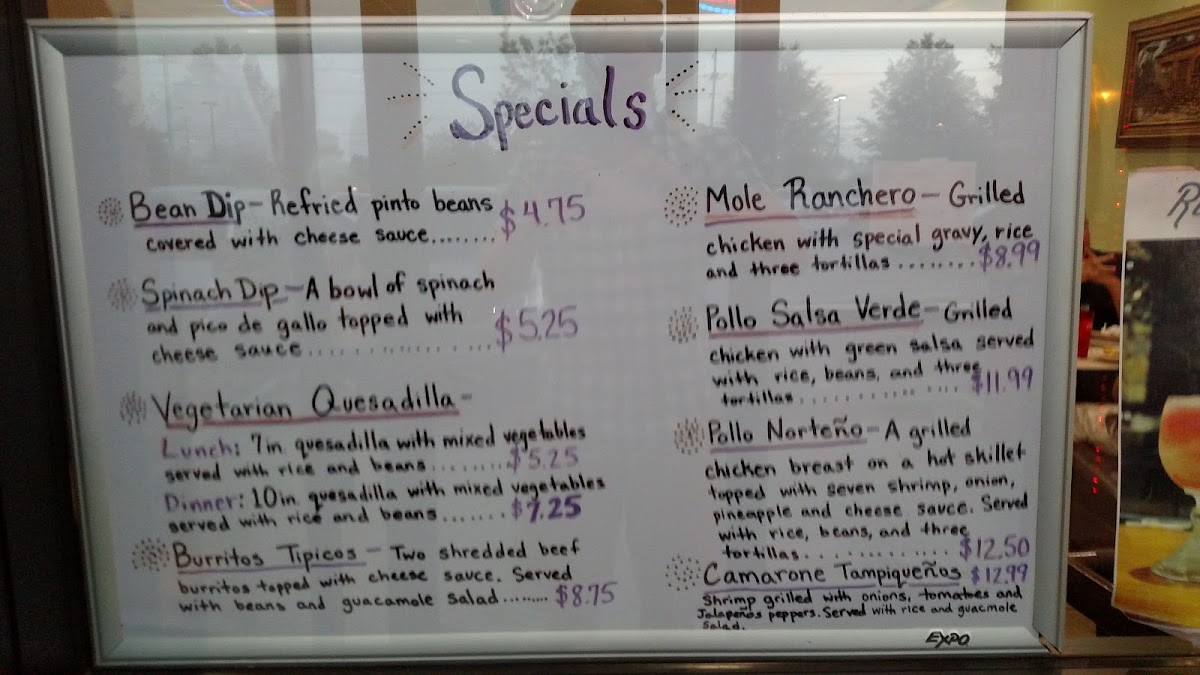 Specials
Bean Dip - Refried pinto beans
covered with cheese sauce........ $4.75
Spinach Dip - A bowl of spinach
and pico de gallo topped with
cheese sauce................ $5.25
Vegetarian Quesadilla -
Lunch: 7in. quesadilla with mixed vegetables
served with rice and beans......... $5.25
Dinner: 10in. quesadilla with mixed vegetables
served with rice and beans....... $7.25
Burritos Tipicos - Two shredded beef
burritos topped with cheese sauce. Served
with beans and guacamole salad......... $8.75
Mole Ranchero - Grilled
chicken with special gravy, rice
and three tortillas......... $8.99
Pollo Salsa Verde - Grilled
chicken with green salsa served
with rice, beans, and three
tortillas.............. $11.99
Pollo Norteño - A grilled
chicken breast on a hot skillet
topped with seven shrimp, onion,
pineapple and cheese sauce. Served
with rice, beans, and three
tortillas............... $12.50
Camarone Tampiqueños $12.99
Shrimp grilled with onions, tomatoes and
Jalapeños peppers. Served with rice and guacmole
Salad.
EXPO